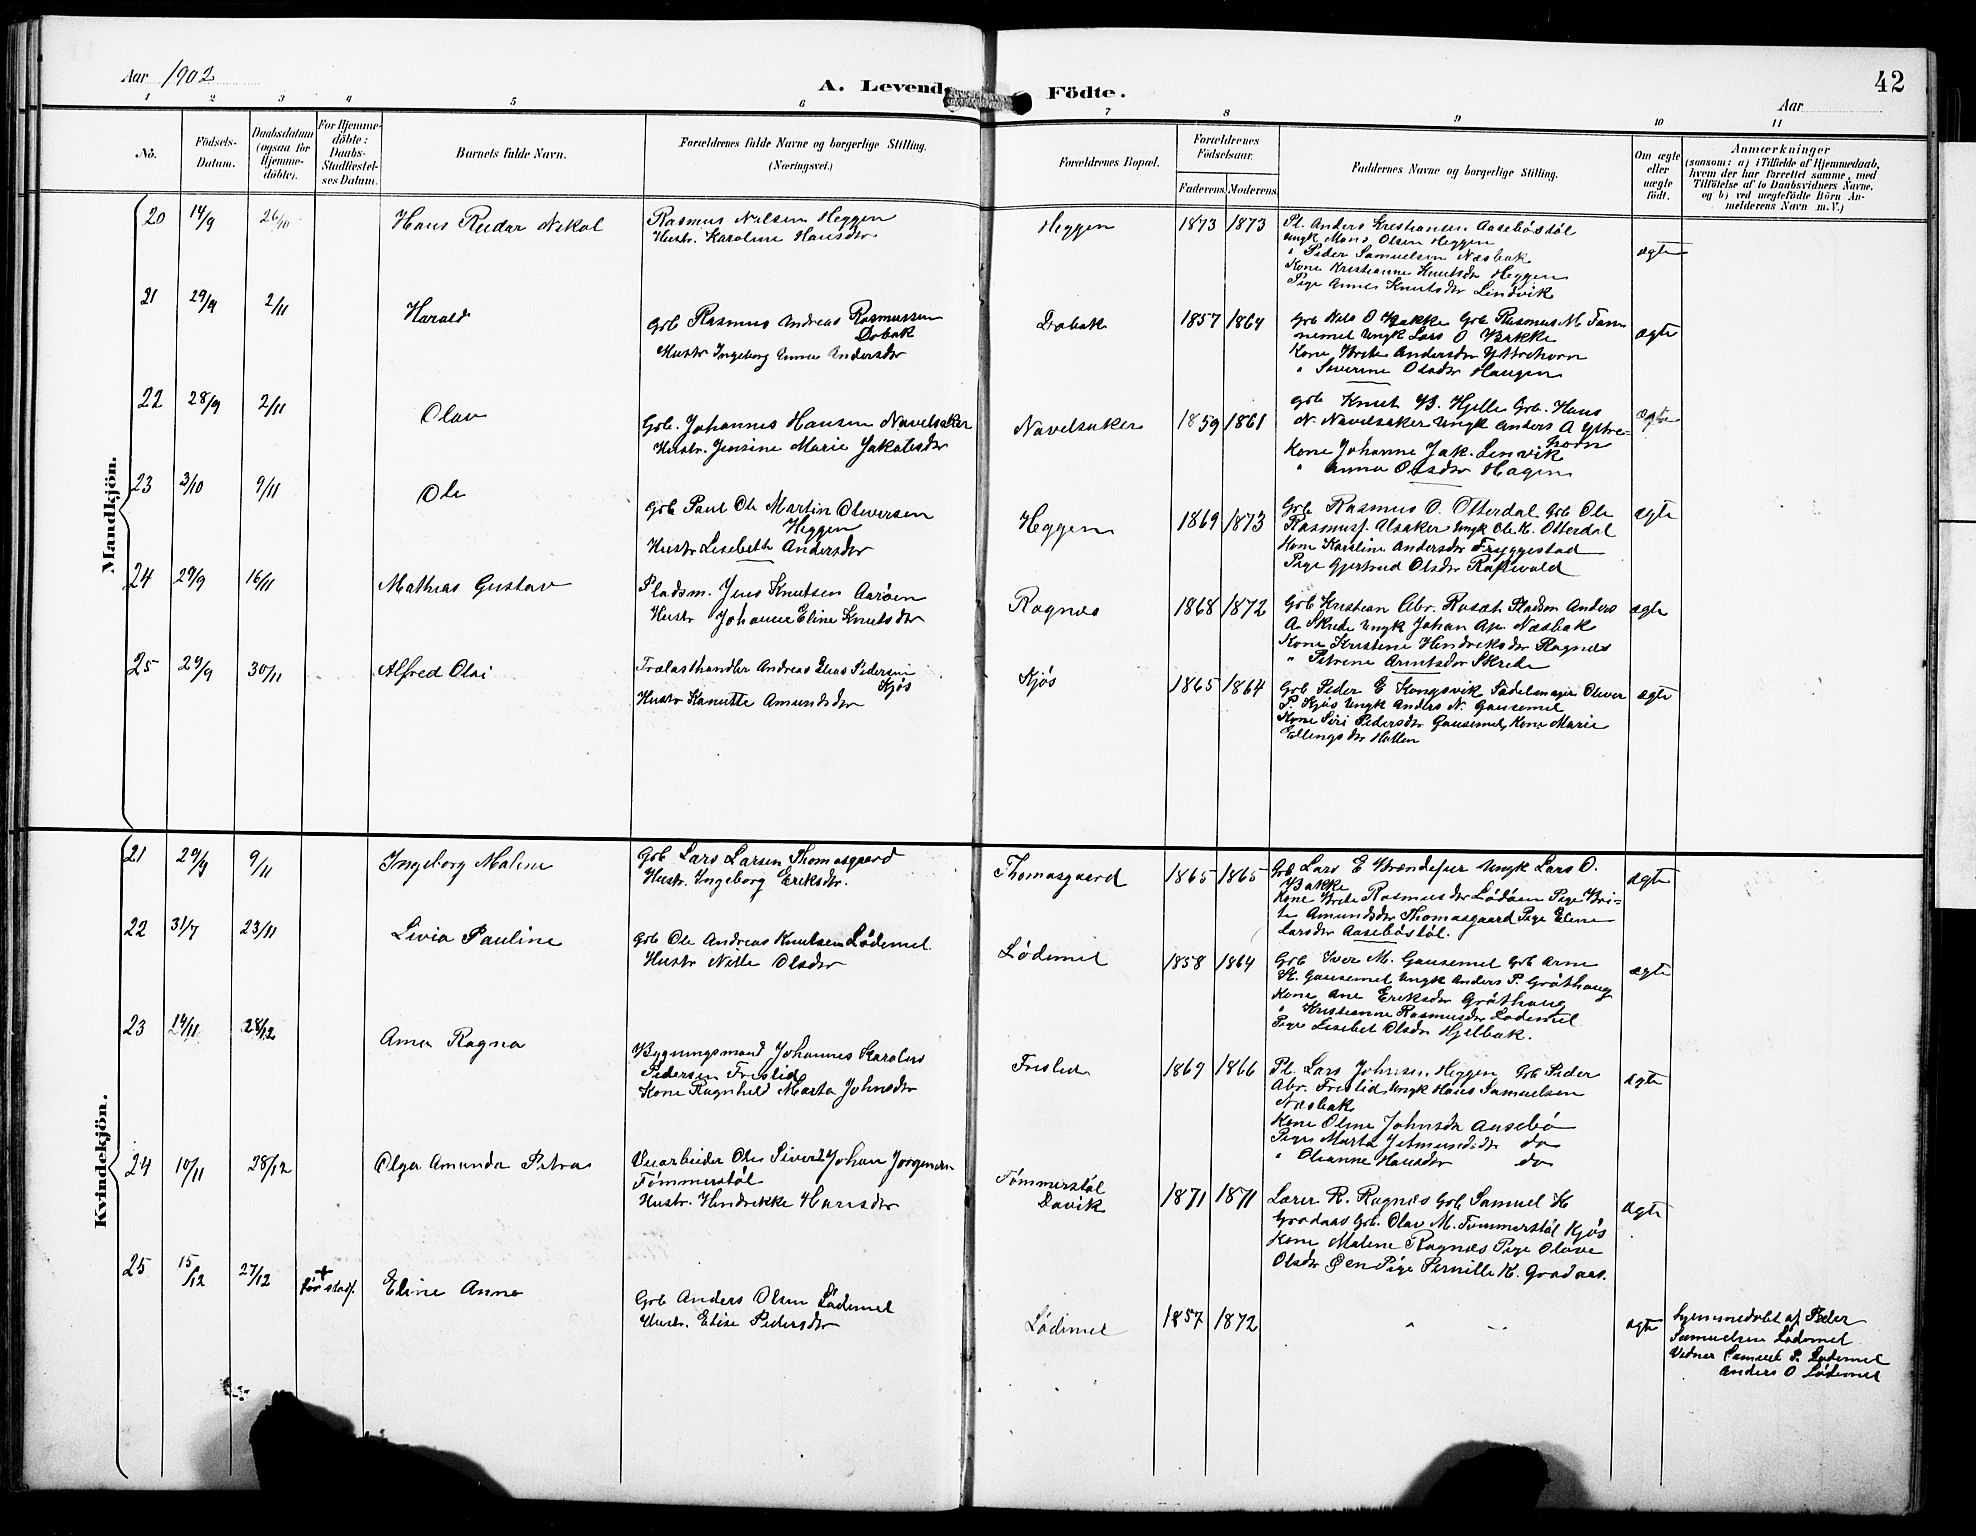 Aar 1902
A. Levende Födte.
42
Aar
1 2 3 4 5 6 7 8 9 10 11
No.
Födsels-Datum.
Daabsdatum (ogsaa for Hjemme-döbte).
For Hjemme-döbte: Daabs-Stadfæstel-ses Datum.
Barnets fulde Navn.
Forældrenes fulde Navne og borgerlige Stilling.
(Næringsvei.)
Forældrenes Bopæl.
Forældrenes Födselsaar.
Faderens. Moderens.
Faddernes Navne og borgerlige Stilling.
Om ægte eller uægte födt.
Anmærkninger
(saasom: a) i Tilfælde af Hjemmedaab,
hvem der har forrettet samme, med
Tilföielse af to Daabsvidners Navne,
og b) ved uægtefödte Börn An-
melderens Navn m. V.)
Mandkjön.
20 14/9 26/10 Hans Reidar Nikol
Rasmus Nilsen Heggen
Hustr. Karoline Hansdtr
Heggen 1873 1873
Pl. Anders Kristiansen Aasebøstøl
Ungk Mons Olsen Heggen
" Peder Samuelsen Næsbak
Kone Kristianne Knutsdtr Heggen
Pige Anne Knutsdtr Lindvik
ægte
21 29/9 2/11 Harald
Grb Rasmus Andreas Rasmussen
Dobak
Hustr Ingeborg Anne Andersdtr
Dobak 1857 1864
Grb Nils O Bakke Grb Rasmus M Tam
nemel Ungk Lars O Bakke
Kone Brite Andersdtr Yttrehorn
" Severine Olsdtr Haugen
ægte
22 28/9 2/11 Olav
Grb. Johannes Hansen Navelsaker
Hustr. Jensine Marie Jakobsdtr
Navelsaker 1859 1861
Grb Knut B. Hjelle Grb. Hans
N. Navelsaker Ungk Anders A Yttre-
horn
Kone Johanne Jak. Linvik
" Anna Olsdtr Hagen
ægte
23 3/10 9/11 Ole
Grb Paul Ole Martin Oliversen
Heggen
Hustr Lisebeth Andersdtr
Heggen 1869 1873
Grb Rasmus O. Otterdal Grb Ole
Rasmusf. Alsaker Ungk Ole K. Otterdal
Kone Karoline Andersdtr Fryggestad
Pige Gjertrud Olsdtr Raftevold
ægte
24 29/9 16/11 Mathias Gustav
Pladsm. Jens Knutsen Aarøen
Hustr Johanne Eline Knutsdtr
Ragnæs 1868 1872
Grb Kristian Abr. Rosæt Pladsm Anders
A Skrede Ungk Johan Ap. Næsbak
Kone Kristine Hendriksdtr Ragnæs
" Petrine Arntsdtr Skrede
ægte
25 29/9 30/11 Alfred Olai
Trælasthandler Andreas Elias Pedersen
Kjøs
Hustr Kanutte Amundsdtr
Kjøs 1865 1864
Grb Peder E Kongsvik Sadelmager Oliver
P Kjøs Ungk Anders N. Gausemel
Kone Siri Pedersdtr Gausemel, Kone Marie
Ellingsdtr Hatlen
ægte
Kvindekjön.
21 29/9 9/11 Ingeborg Maline
Grb Lars Larsen Thomasgaard
Hustr. Ingeborg Eriksdtr.
Thomasgaard 1865 1865
Grb Lars E Brendefur Ungk Lars O.
Bakke
Kone Brite Rasmusdtr Lødøen Pige Bri-
te Amundsdtr Thomasgaard Pige Eline
Larsdtr Aasebøstøl.
ægte
22 31/7 23/11 Livia Pauline
Grb Ole Andreas Knutsen Lødemel.
Hustr Nille Olsdtr
Lødemel 1858 1864
Grb Iver M. Gausemel Grb Arne
K. Gausemel Ungk Anders P. Grøthaug
Kone Ane Eriksdtr Grøthaug
" Kristianne Rasmusdtr Lødemel
Pige Lisebet Olsdtr Hjelbak.
ægte
23 14/11 28/12 Anna Ragna
Bygningsmand Johannes Karolus
Pedersen Frislid
Kone Ragnhild Marta Johnsdtr
Frislid 1869 1866
Pl. Lars Johnsen Heggen Grb Peder
Abr. Frislid, Ungk Hans Samuelsen
Næsbak
Kone Oline Johnsdtr Aasebø
Pige Marta Jetmundsdtr do
" Olianne Hansdtr do
ægte
24 10/11 28/12 Olga Amanda Petra
Veiarbeider Ole Sivert Johan Jørgensen
Tømmerstøl
Hustr. Hindrikke Hansdtr
Tømmerstøl
Davik 1871 1871
Lærer R. Ragnæs Grb Samuel H
Grodaas Grb. Olav M. Tømmerstøl Kjøs
Kone Malene Ragnæs Pige Olave
Olsdtr Øen Pige Pernille K. Grodaas.
ægte
25 15/12 27/12 + før stadf. Eline Anna
Grb Anders Olsen Lødemel
Hustr. Elise Pedersdtr
Lødemel 1857 1872 " — ægte
Hjemmedøbt af Peder
Samuelsen Lødemel
Vidner Samuel P. Lødemel
Anders O Lødemel